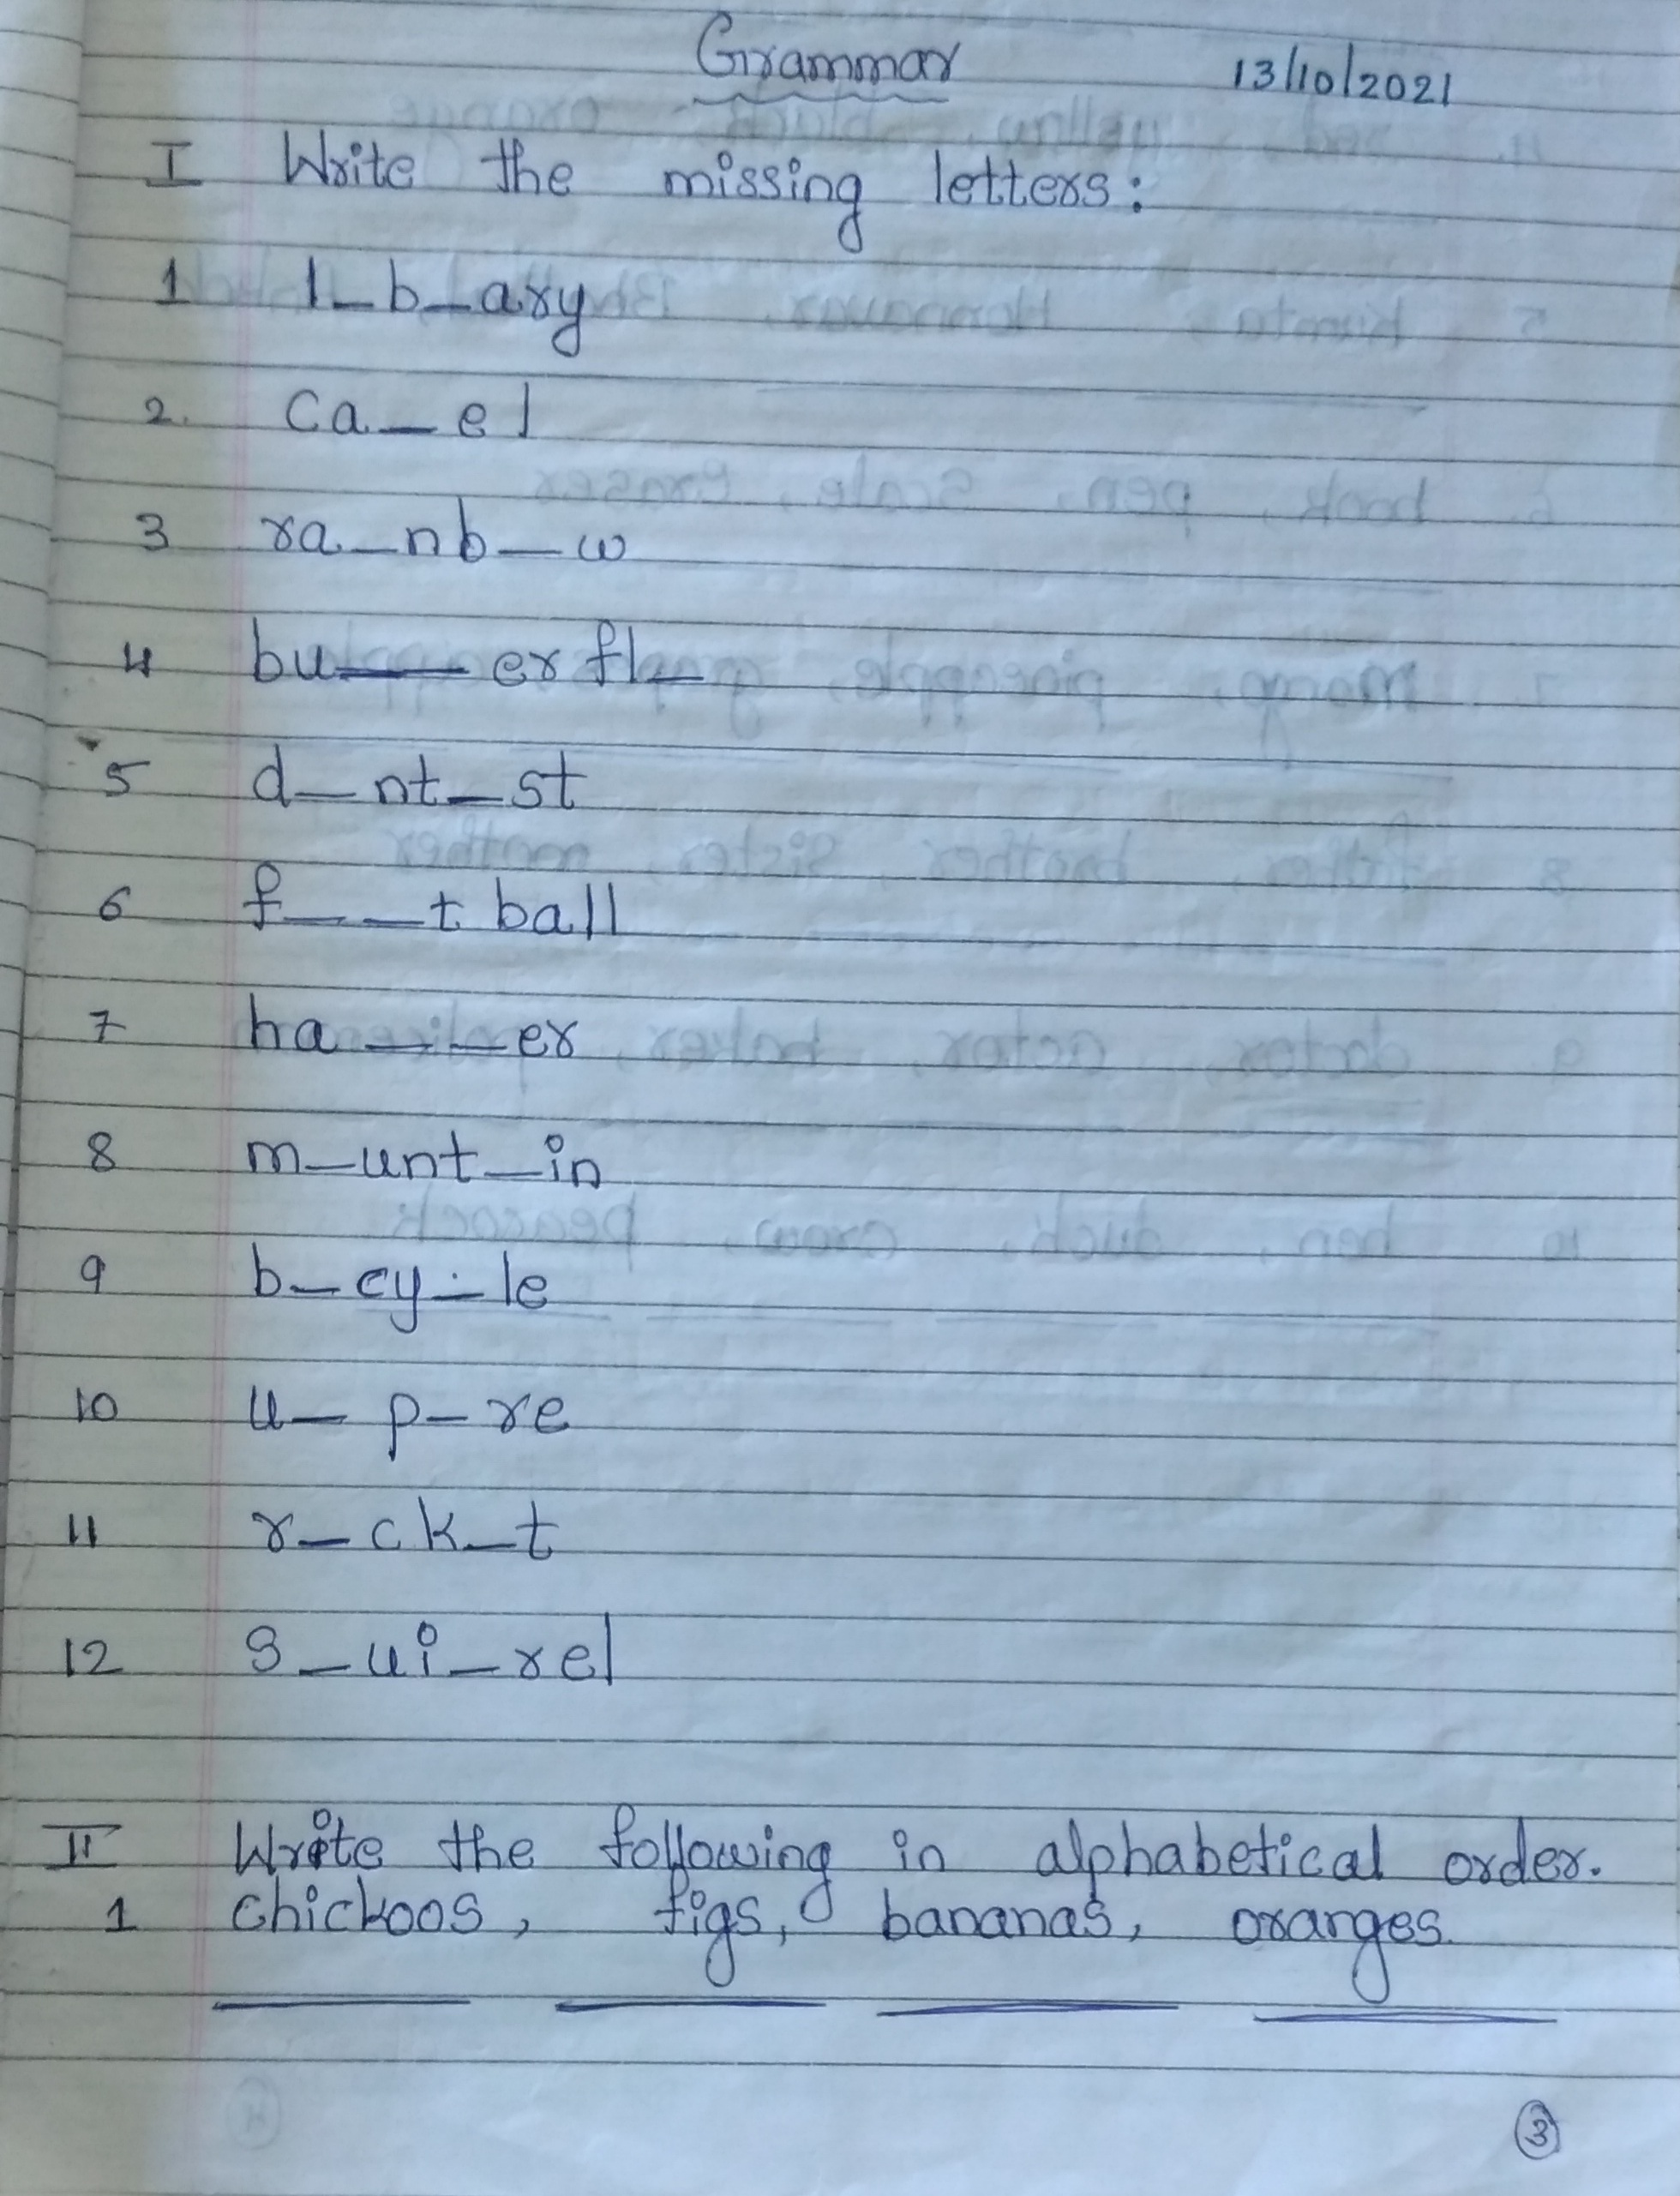 Grammar 13/10/2021
I Write the missing letters:
1 l_b_ary
2. ca_el
3 ra_nb_w
4 bu__erfl_
5 d_nt_st
6 f__tball
7 ha__er
8 m_unt_in
9 b_cy_le
10 u_p_re
11 r_ck_t
12 s_ui_rel
II Write the following in alphabetical order.
1 chickoos, figs, bananas, oranges.
3